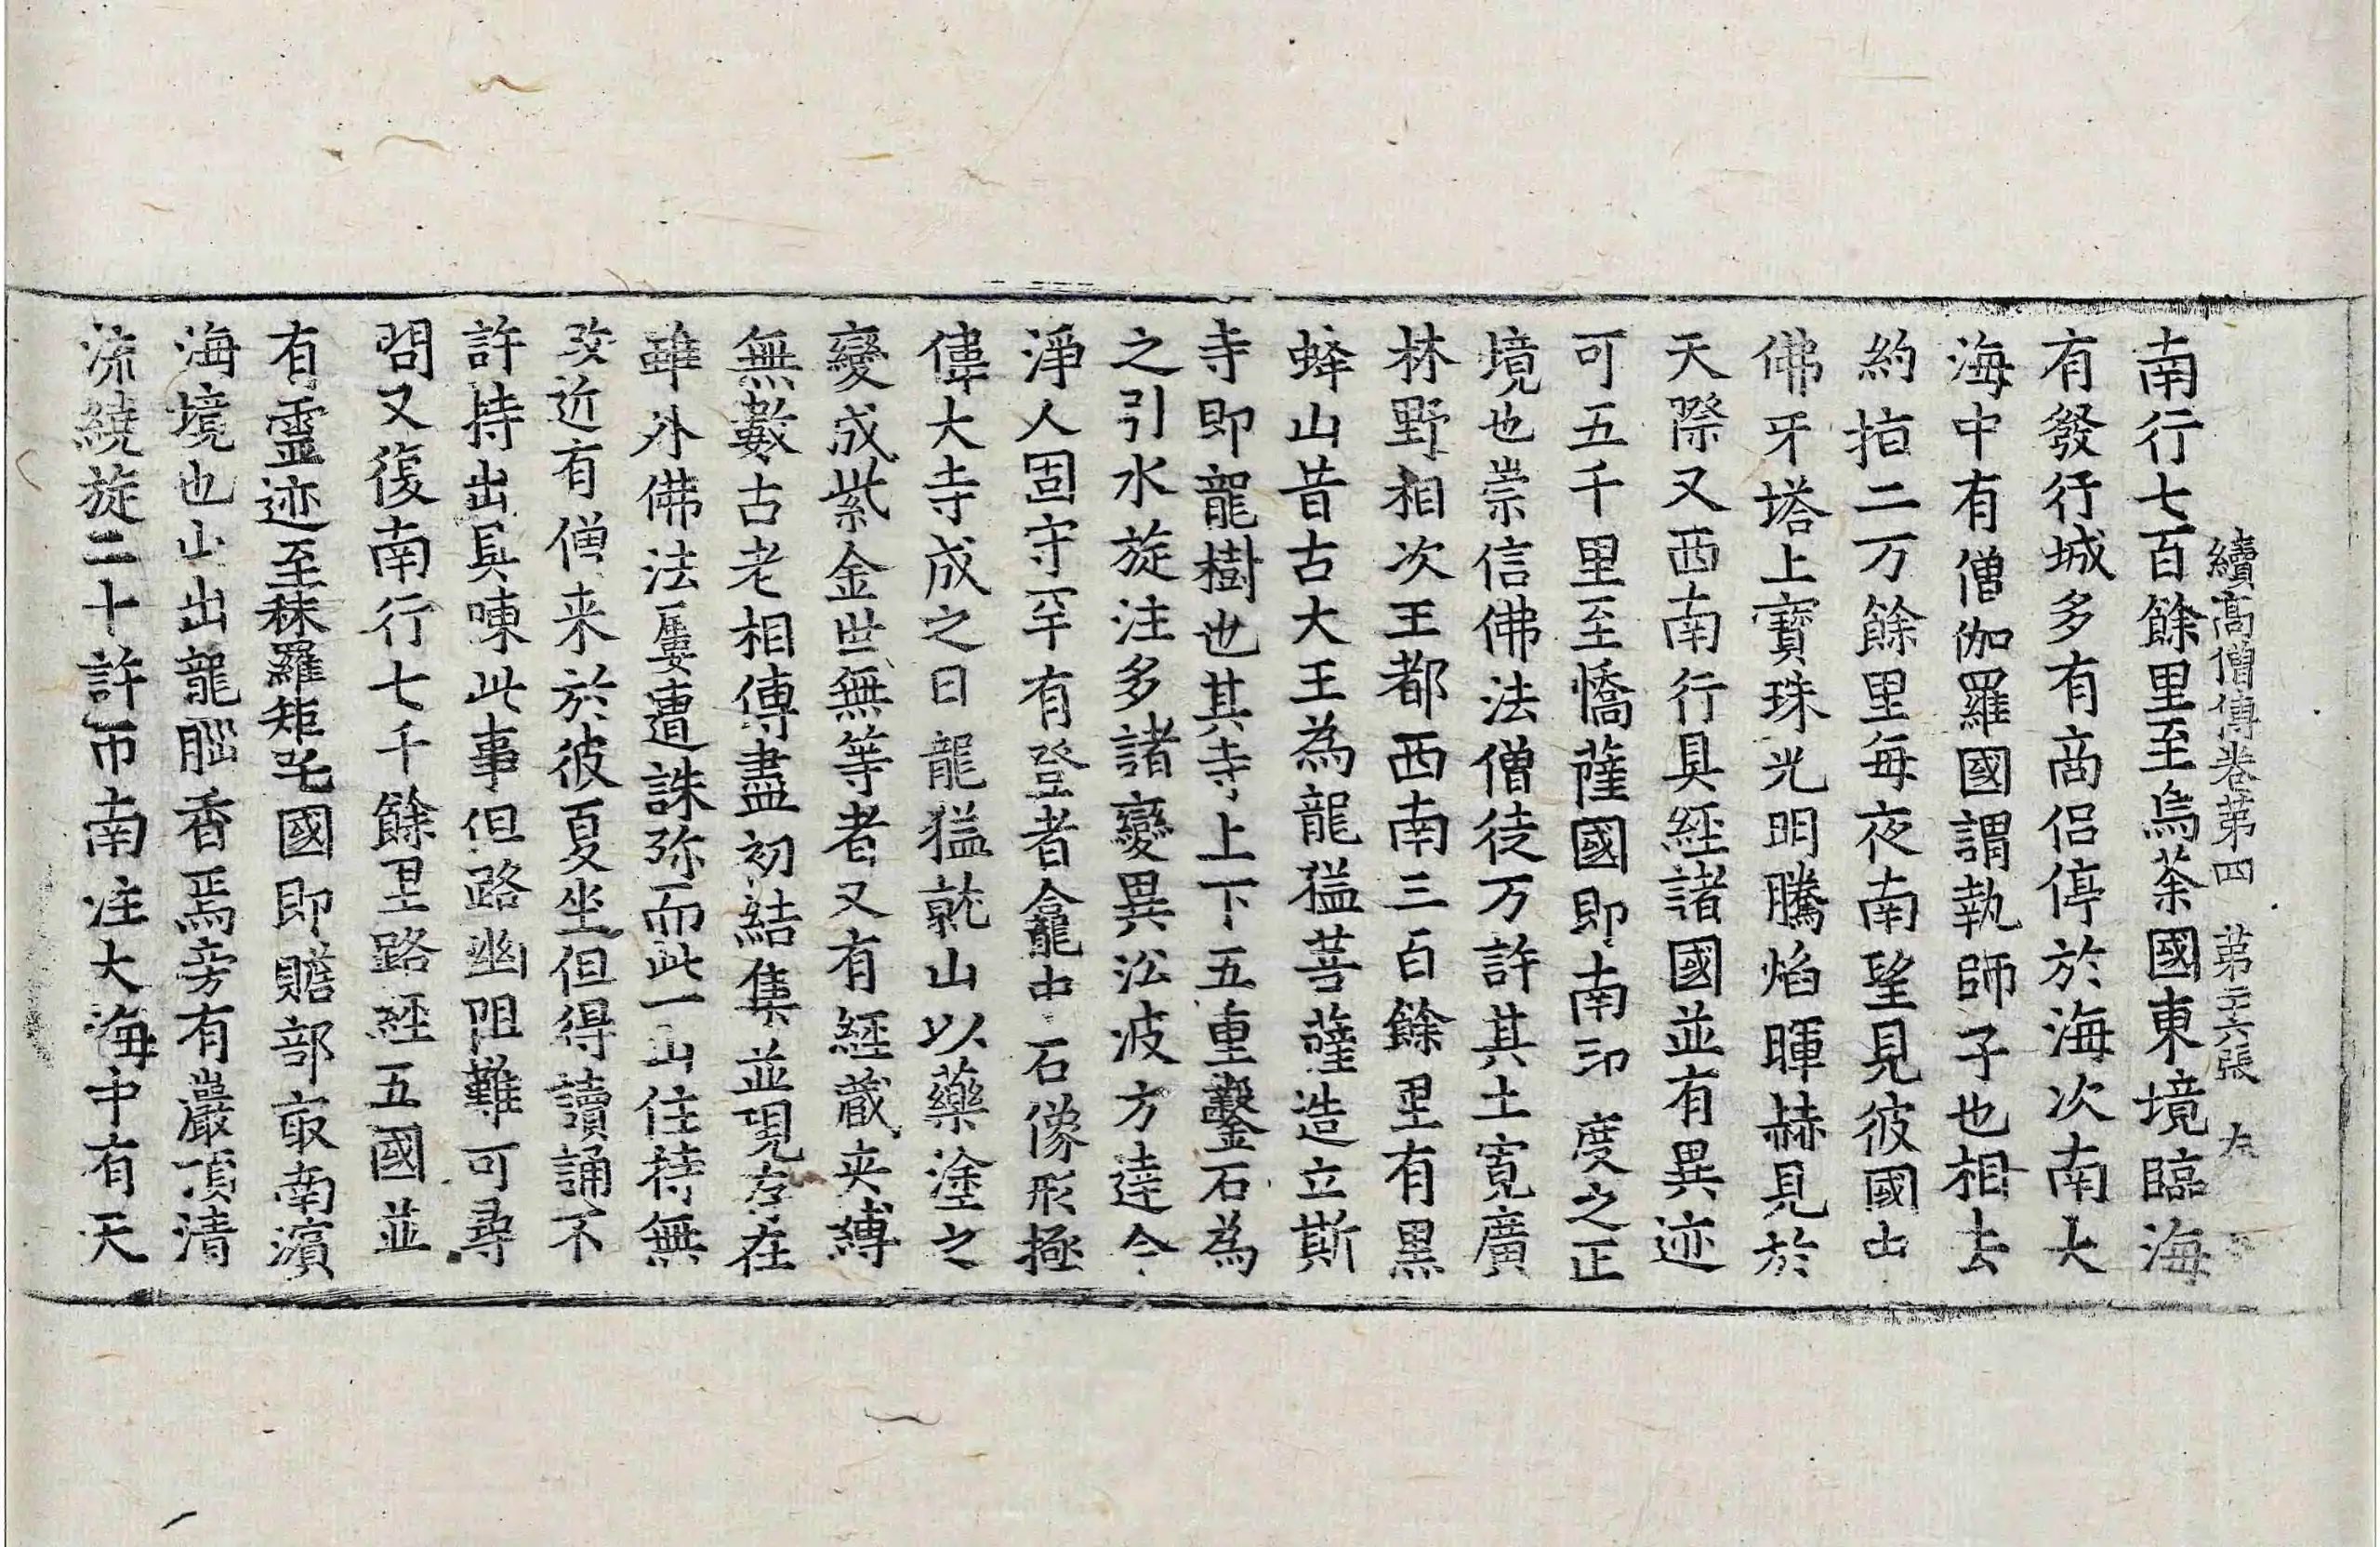 續高僧傳卷第四 第二六張 左
南行七百餘里至烏荼國東境臨海
有發行城多有商侶停於海次南大
海中有僧伽羅國謂執師子也相去
約指二万餘里每夜南望見彼國山
佛牙塔上寶珠光明騰焰暉赫見於
天際又西南行具經諸國並有異迹
可五千里至憍薩國即南印度之正
境也崇信佛法僧徒万許其土寛廣
林野相次王都西南三百餘里有黑
蜂山昔古大王為龍猛菩薩造立斯
寺即龍樹也其寺上下五重鑿石為
之引水旋注多諸變異㳂波方達今
淨人固守罕有登者龕中石像形極
偉大寺成之日龍猛就山以藥塗之
變成紫金世無等者又有經蔵夹縛
無數古老相傳盡初結集並現存在
雖外佛法屢遭誅殄而此一山住持無
改近有僧来於彼夏坐但得讀誦不
許持出具陳此事但路幽阻難可尋
問又復南行七千餘里路經五國並
有靈迹至秣羅矩吒國即贍部㝡南濱
海境也山出龍腦香焉旁有巖頂清
流繞旋二十許帀南注大海中有天